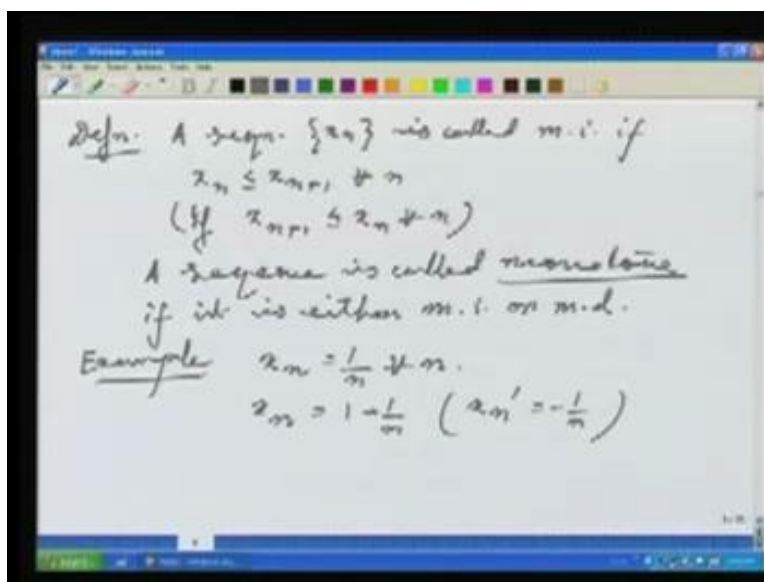 Defn. A seqn. {xₙ} is called m.i. if
xₙ ≤ xₙ₊₁ ∀ n
(If xₙ₊₁ ≤ xₙ ∀ n)
A sequence is called monotone
if it is either m.i. or m.d.
Example xₙ = 1/n ∀ n.
xₙ = 1 - 1/n (xₙ' = -1/n)